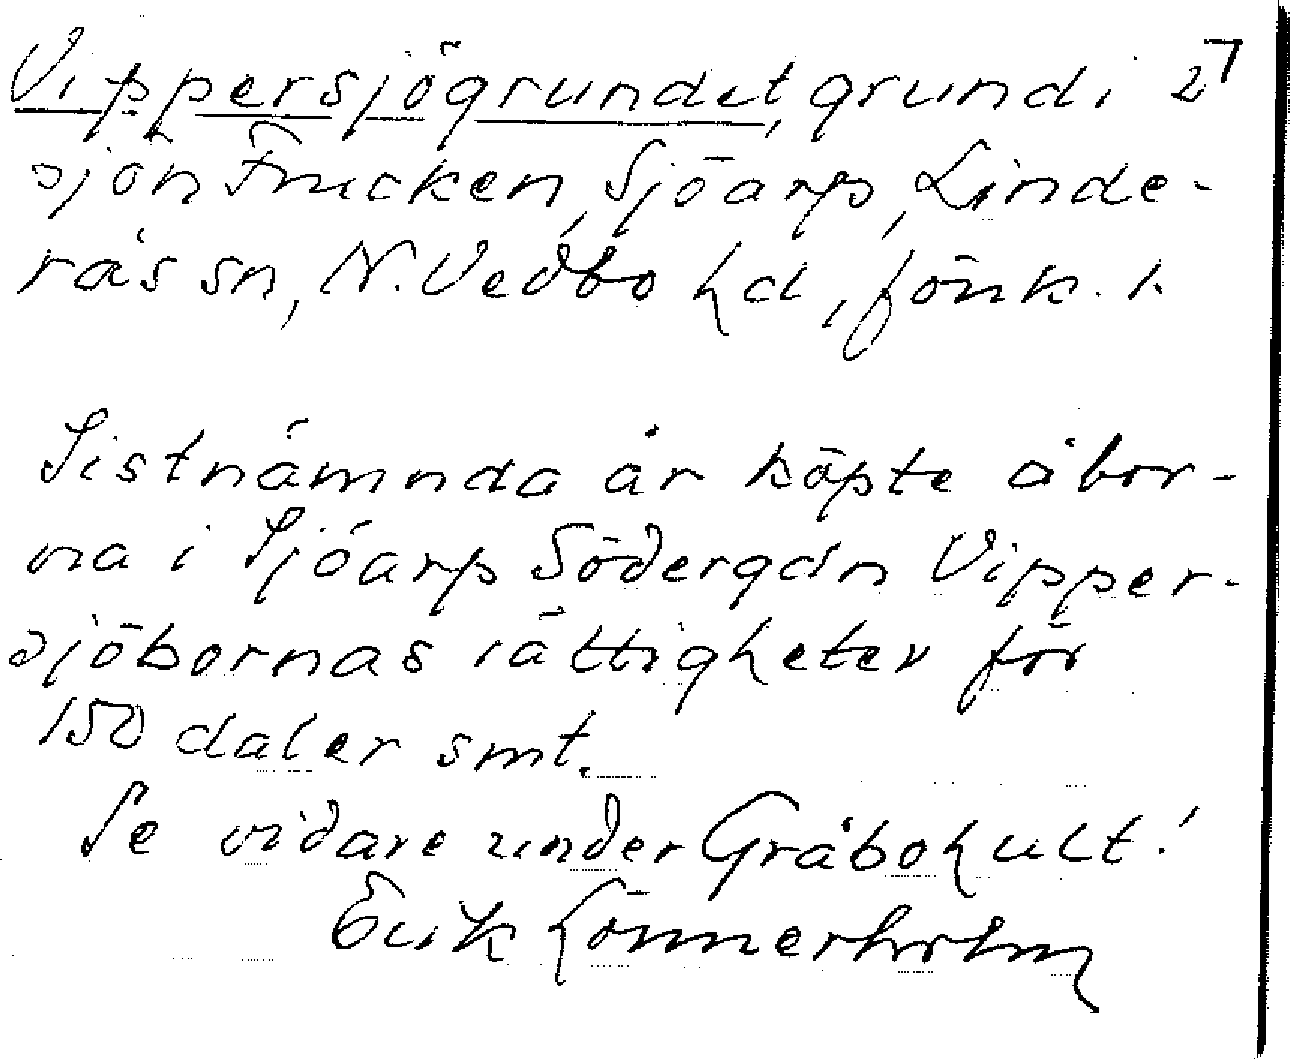 Vippersjögrundet, grund i 27
sjön Frucken, Sjöarp, Linde-
rås sn, N. Vedbo hd, Jönk. l.
Sistnämnda år köpte åbor-
na i Sjöarp Södergdn Vipper-
sjöbornas rättigheter för
150 daler smt.
Se vidare under Gråbohult!
Erik Lönnerholm